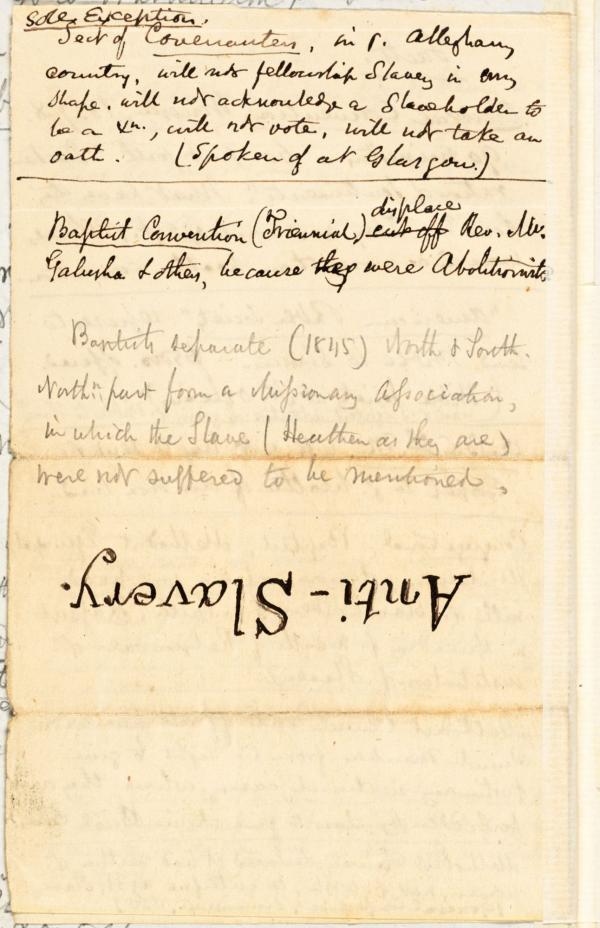 Sole Exception.
Sect of Covenanters, in p. Alleghany
country, will not fellowship Slavery in any
shape, will not acknowledge a Slaveholder to
be a Xn., will not vote, will not take an
oath. (Spoken of at Glasgow.)
Baptist Convention (Triennial) cut off displace Rev. Mr.
Galusha & others, because they were Abolitionists
Baptists separate (1845) North & South.
North:n part form a Missionary Association,
in which the Slave (Heathen as they are)
were not suffered to be mentioned.
Anti-Slavery.